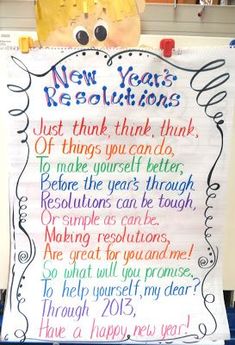 New Year's
Resolutions
Just think, think, think,
Of things you can do,
To make yourself better,
Before the year's through.
Resolutions can be tough,
Or simple as can be.
Making resolutions,
Are great for you and me!
So what will you promise,
To help yourself, my dear?
Through 2013,
Have a happy new year!